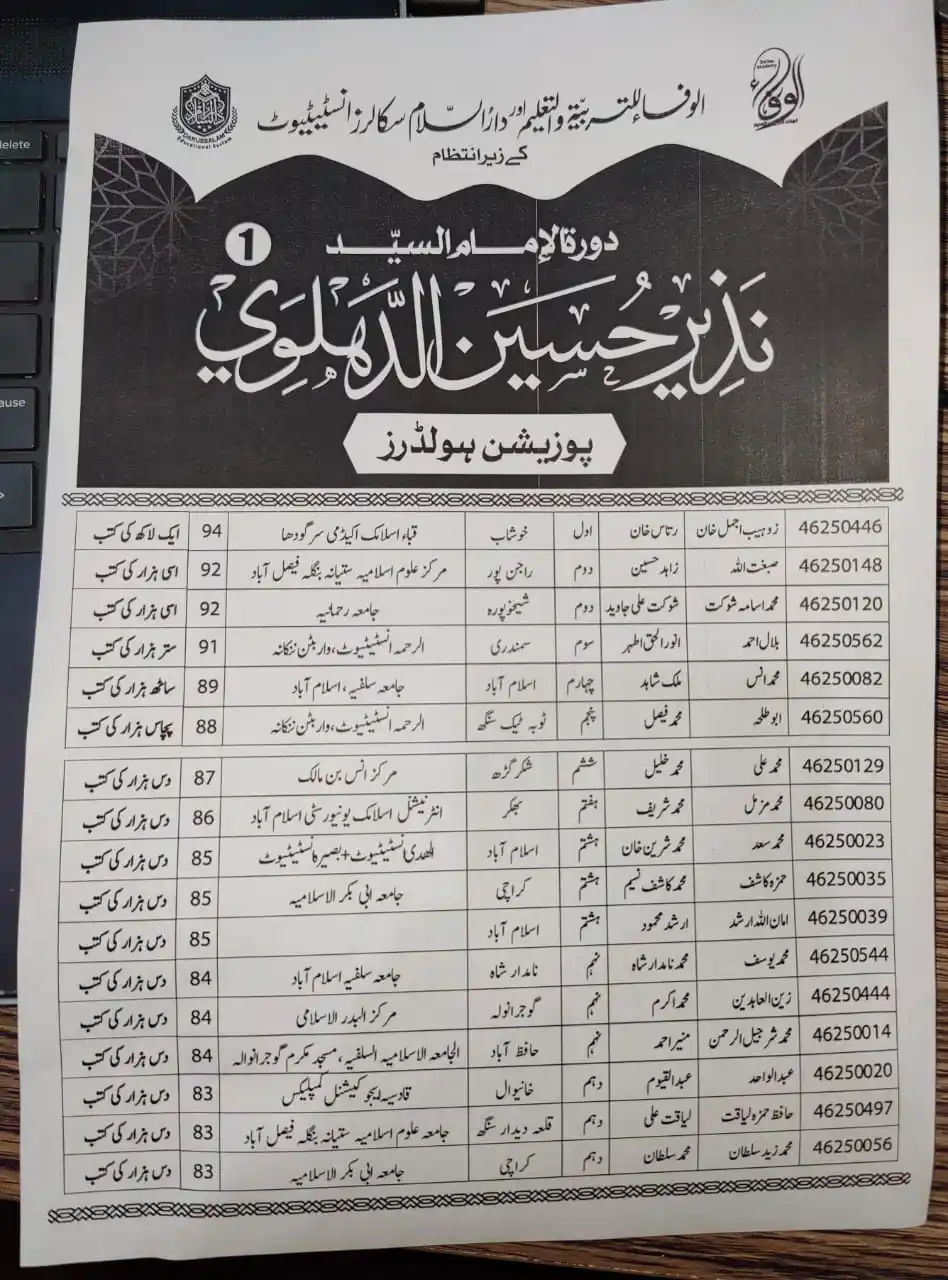 الوفاء للتربیۃ والتعلیم اور دارُ السلام سکالرز انسٹیٹیوٹ
DARUSSALAM
Educational System
کے زیر انتظام
دورة الإمام السيّد
1
نَذِير حُسَين الدَّهْلَوِي
پوزیشن ہولڈرز
46250446 زوہیب اجمل خان رتاس خان اول خوشاب قباء اسلامک اکیڈمی سرگودھا 94 ایک لاکھ کی کتب
46250148 صبغت اللہ زاہد حسین دوم راجن پور مرکز علوم اسلامیہ ستیانہ بنگلہ فیصل آباد 92 اسی ہزار کی کتب
46250120 محمد اسامہ شوکت شوکت علی جاوید دوم شیخوپورہ جامعہ رحمانیہ 92 اسی ہزار کی کتب
46250562 بلال احمد انور الحق اطہر سوم سمندری الرحمہ انسٹیٹیوٹ، وار برٹن ننکانہ 91 ستر ہزار کی کتب
46250082 محمد انس ملک شاہد چہارم اسلام آباد جامعہ سلفیہ، اسلام آباد 89 ساٹھ ہزار کی کتب
46250560 ابو طلحہ محمد فیصل پنجم ٹوبہ ٹیک سنگھ الرحمہ انسٹیٹیوٹ، وار برٹن ننکانہ 88 پچاس ہزار کی کتب
46250129 محمد علی محمد خلیل ششم شکر گڑھ مرکز انس بن مالک 87 دس ہزار کی کتب
46250080 محمد مزمل محمد شریف ہفتم بھکر انٹرنیشنل اسلامک یونیورسٹی اسلام آباد 86 دس ہزار کی کتب
46250023 محمد سعد محمد شرین خان ہشتم اسلام آباد الھدی انسٹیٹیوٹ+بصیرہ انسٹیٹیوٹ 85 دس ہزار کی کتب
46250035 حمزہ کاشف محمد کاشف نسیم ہشتم کراچی جامعہ ابی بکر الاسلامیہ 85 دس ہزار کی کتب
46250039 امان اللہ ارشد ارشد محمود ہشتم اسلام آباد 85 دس ہزار کی کتب
46250544 محمد یوسف محمد نامدار شاہ نہم نامدار شاہ جامعہ سلفیہ اسلام آباد 84 دس ہزار کی کتب
46250444 زین العابدین محمد اکرم نہم گوجرانولہ مرکز البدر الاسلامی 84 دس ہزار کی کتب
46250014 محمد شرجیل الرحمن منیر احمد نہم حافظ آباد الجامعہ الاسلامیہ السلفیہ، مسجد مکرم گوجرانوالہ 84 دس ہزار کی کتب
46250020 عبد الواحد عبد القیوم دہم خانیوال قادسیہ ایجوکیشنل کمپلیکس 83 دس ہزار کی کتب
46250497 حافظ حمزہ لیاقت لیاقت علی دہم قلعہ دیدار سنگھ جامعہ علوم اسلامیہ ستیانہ بنگلہ فیصل آباد 83 دس ہزار کی کتب
46250056 محمد زید سلطان محمد سلطان دہم کراچی جامعہ ابی بکر الاسلامیہ 83 دس ہزار کی کتب